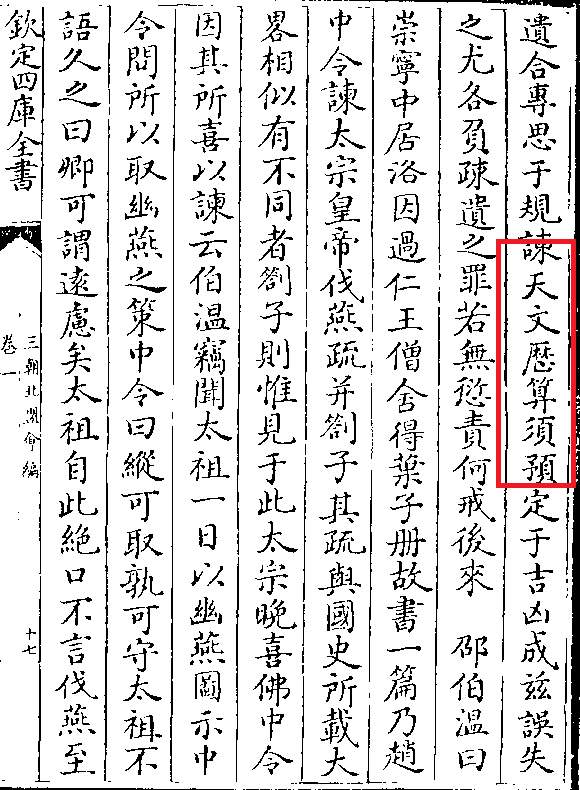 遺合專思于規諫天文歷算須預定于吉凶成兹誤失
之尤各負疎遺之罪若無愆責何戒後來　邵伯温曰
崇寧中居洛因過仁王僧舍得葉子册故書一篇乃趙
中令諫太宗皇帝伐燕疏并劄子其疏與國史所載大
畧相似有不同者劄子則惟見于此太宗晚喜佛中令
因其所喜以諫云伯温竊聞太祖一日以幽燕圖示中
令問所以取幽燕之策中令曰縱可取孰可守太祖不
語久之曰卿可謂遠慮矣太祖自此絶口不言伐燕至
欽定四庫全書
三朝北盟會編
卷一
十七